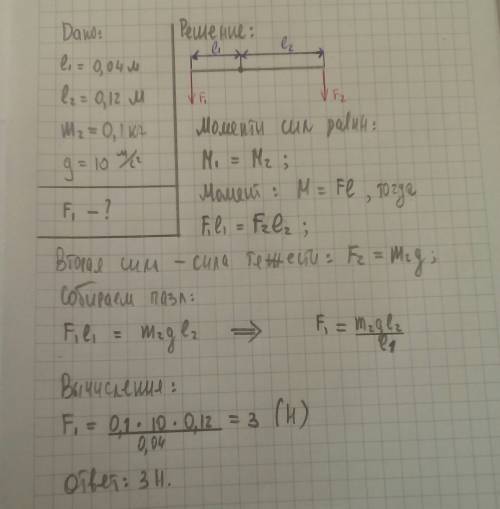 Дано:
l₁ = 0,04 м
l₂ = 0,12 м
m₂ = 0,1 кг
g = 10 м/с²
F₁ – ?
Решение:
l₁ l₂
F₁ F₂
Моменты сил равны:
M₁ = M₂ ;
Момент : M = Fl , тогда
F₁l₁ = F₂l₂ ;
Вторая сила – сила тяжести : F₂ = m₂g ;
Собираем пазл:
F₁l₁ = m₂gl₂ ⟹ F₁ = m₂gl₂ / l₁
Вычисления :
F₁ = 0,1 · 10 · 0,12 / 0,04 = 3 (Н)
Ответ: 3Н.